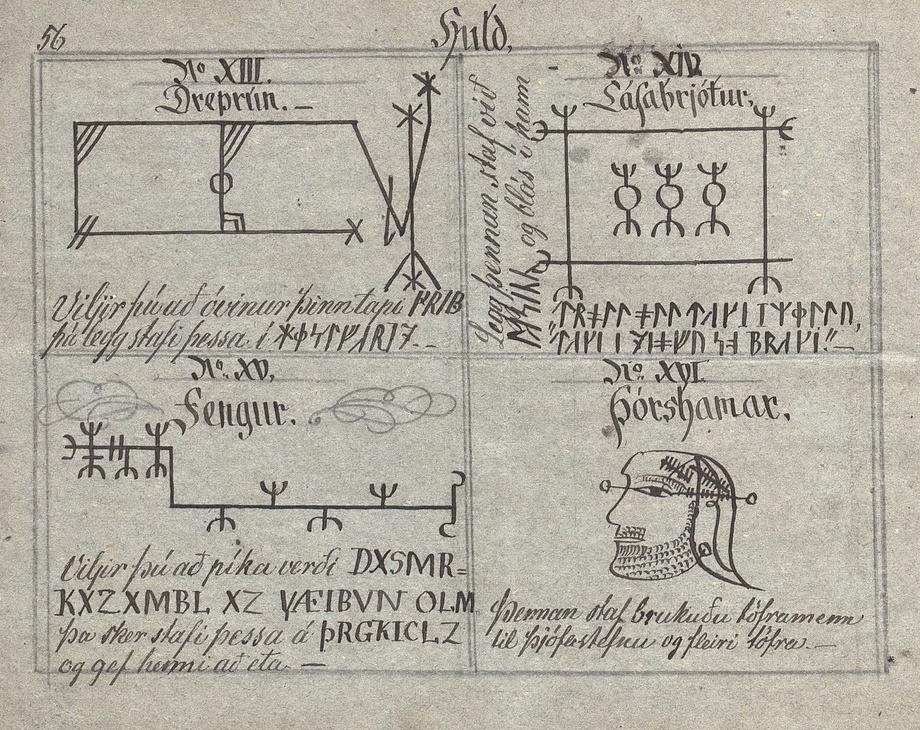 56
Huld.
No XIII.
Dreprún. —
Viljir þú að óvinur þinn tapi
þá legg stafi þessa í
No XIV.
Lásabrjótur.
Legg þennan staf við
og blás í hann
No XV.
Fengur.
Viljir þú að píka verði DXSMR=
KXZXMBL XZ VÆIBVN OLM
þá sker stafi þessa á ÞRGKICLZ
og gef henni að eta. —
No XVI.
Þórshamar.
Þennan staf brukuðu töframenn
til þjófastefnu og fleiri töfra. —